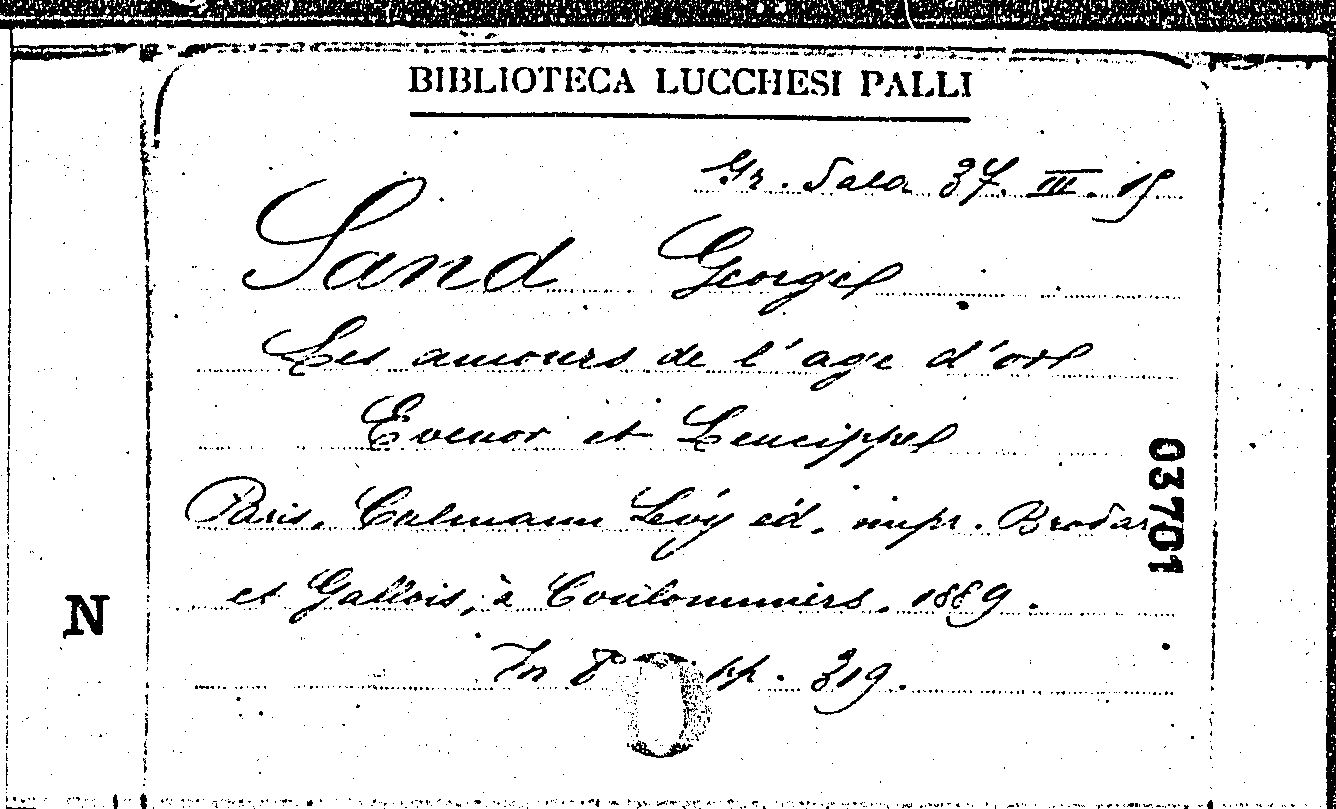 BIBLIOTECA LUCCHESI PALLI
Gr. Sala 37. III. 19
Sand George
Les amours de l'age d'or
Evenor et Leucippe
Paris, Calmann Lévy éd, impr. Brodar
et Gallois, à Coulommiers, 1889.
In 8° pp. 319.
03701
N